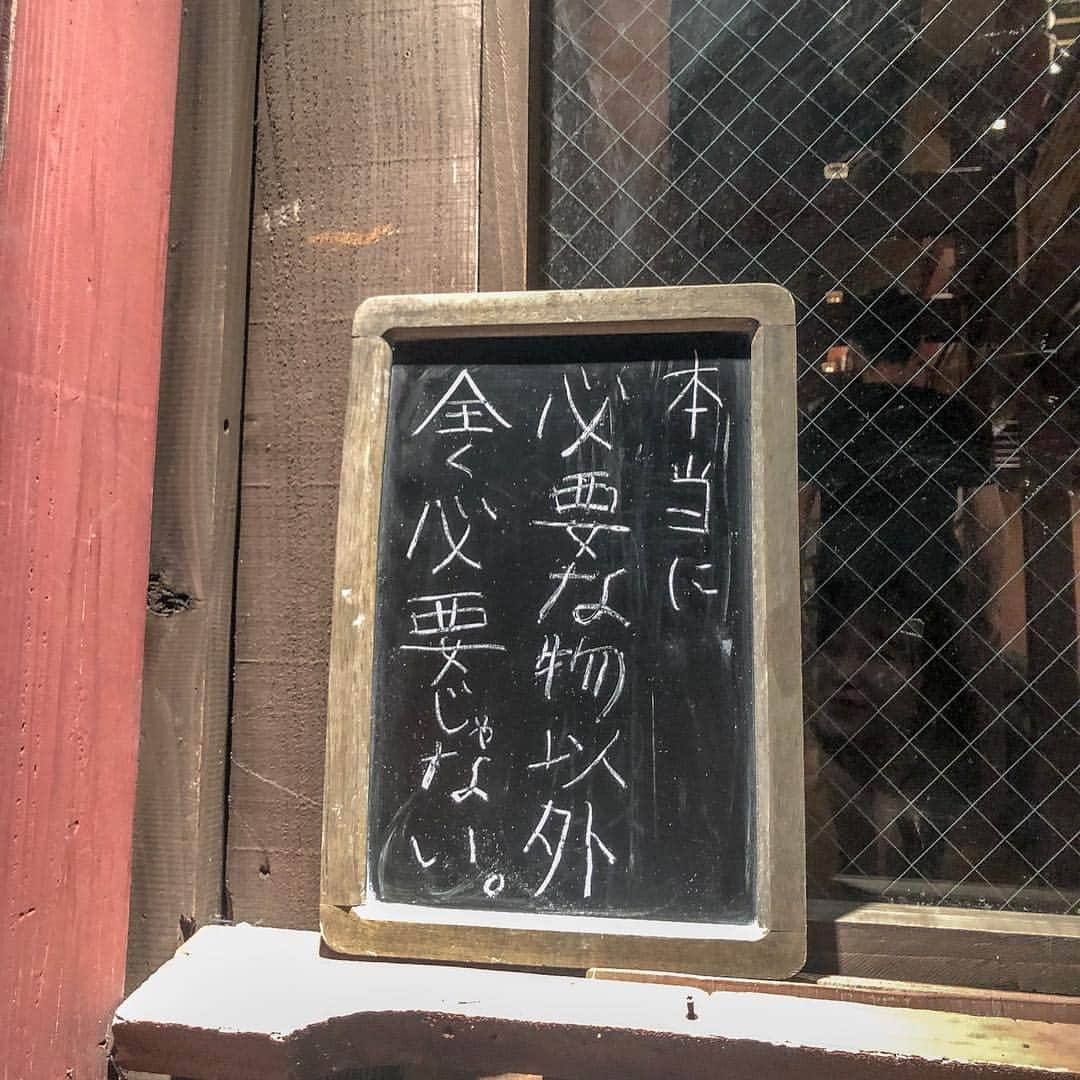 本当に
必要な物以外
全く必要じゃない。